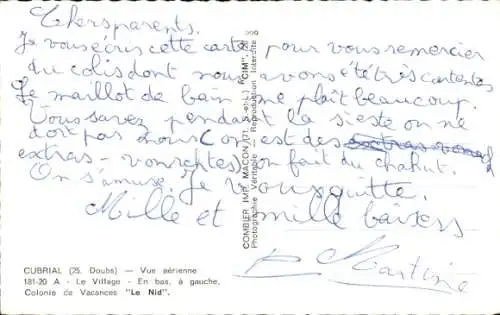 Chers parents.
Je vous écris cette carte pour vous remercier
du colis dont nous avons été très contentes
Le maillot de bain me plaît beaucoup.
Vous savez pendant la sieste on ne
dort pas nous on est des
extras- on fait du chahut.
On s'amuse. Je vous quitte.
Mille et mille baisers
Martine
CUBRIAL (25. Doubs) — Vue aérienne
181-20 A - Le Village - En bas, à gauche,
Colonie de Vacances "Le Nid".
COMBIER IMP. MACON (71. S.-et-L.) "CIM"
Photographie Véritable - Reproduction Interdite